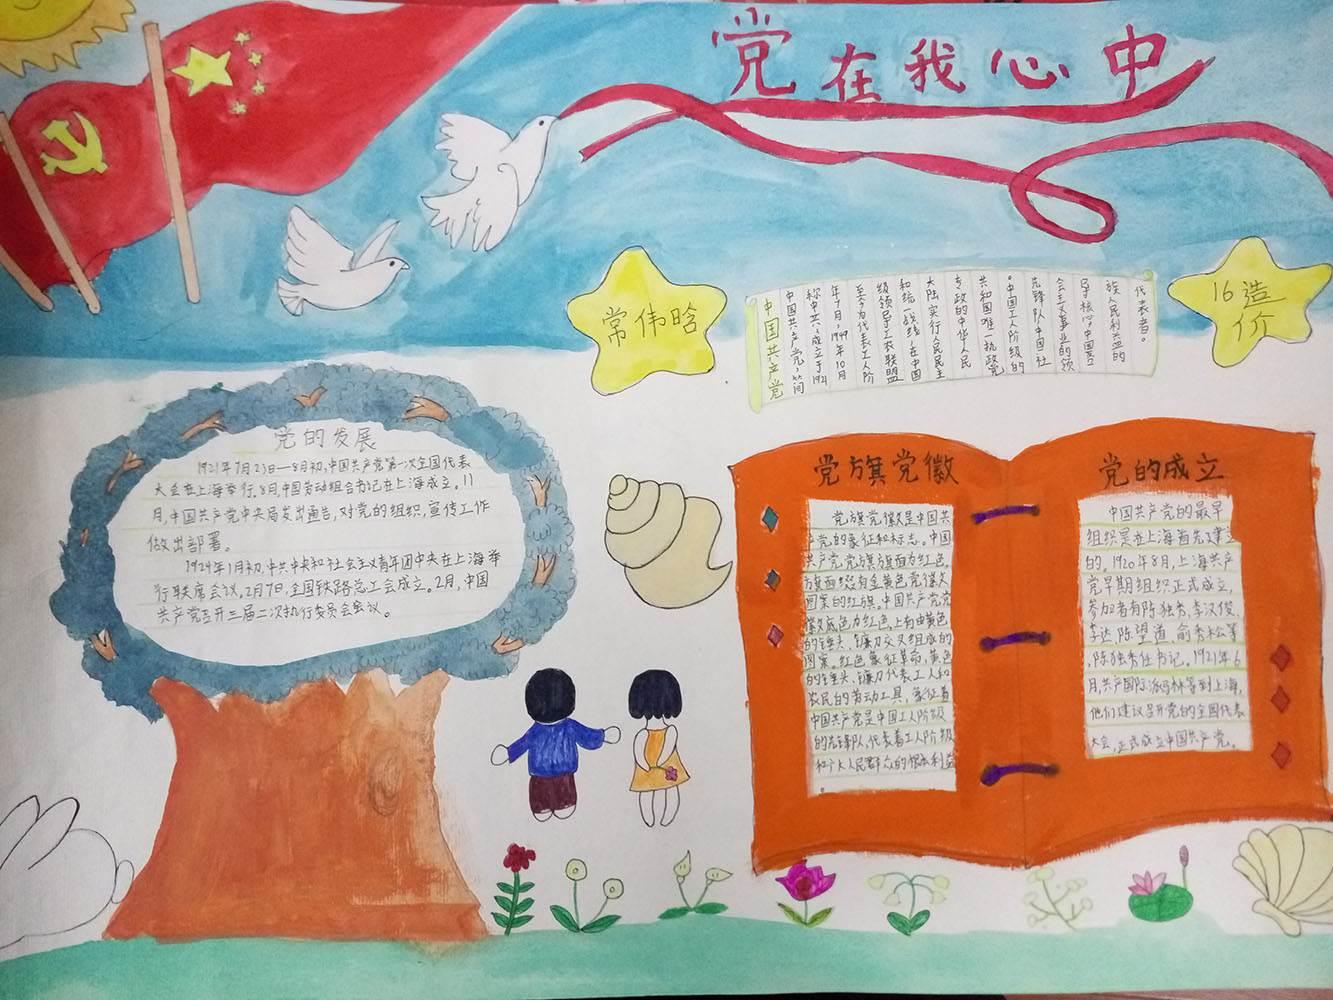 党在我心中
常伟晗
16造
价
中国共产党
中国共产党，简
称中共，成立于1921
年7月，1949年10月
至今为代表工人阶
级领导工农联盟
和统一战线，在中国
大陆实行人民民主
专政的中华人民
共和国唯一执政党
。中国工人阶级的
先锋队中国社
会主义事业的领
导核心，中国各
族人民利益的
代表者。
党的发展
1921年7月23日—8月初，中国共产党第一次全国代表
大会在上海举行。8月，中国劳动组合书记在上海成立。11
月，中国共产党中央局发出通告，对党的组织，宣传工作
做出部署。
1924年1月初，中共中央和社会主义青年团中央在上海举
行联席会议。2月7日，全国铁路总工会成立。2月，中国
共产党召开三届二次执行委员会会议。
党旗党徽
党旗党徽是中国共
产党的象征和标志。中国
共产党党旗旗面为红色，
旗面缀有金黄色党徽
图案的红旗。中国共产党党
徽底色为红色，上有由黄色
的锤头、镰刀交叉组成的
图案。红色象征革命，黄色
的锤头、镰刀代表工人和
农民的劳动工具，象征着
中国共产党是中国工人阶级
的先锋队，代表着工人阶级
和广大人民群众的根本利益
。
党的成立
中国共产党的最早
组织是在上海首先建立
的。1920年8月，上海共产
党早期组织正式成立，
参加者有陈独秀，李汉俊，
李达，陈望道，俞秀松等
，陈独秀任书记。1921年6
月，共产国际派马林等到上海，
他们建议召开党的全国代表
大会，正式成立中国共产党。